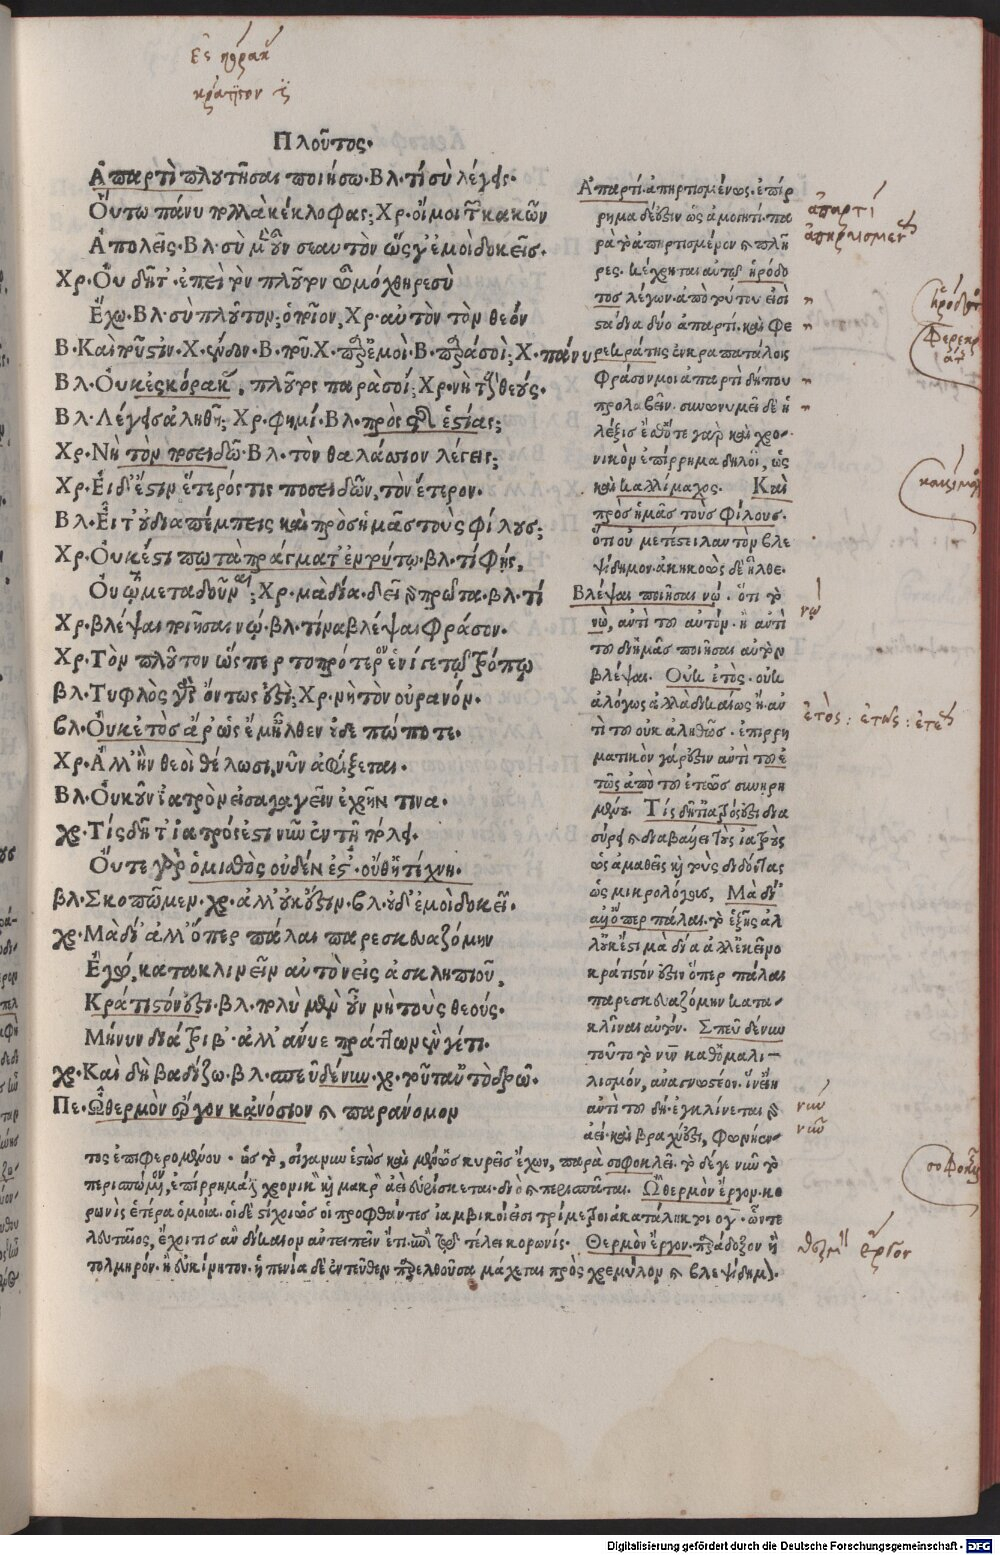 Πλοῦτος.
Ἀπαρτὶ πλυτῆσαι ποιήσω. Βλ. τί σὺ λέγεις.
Οὕτω πάνυ πολλὰ κέκλοφας; Χρ. οἴμοι τῶν κακῶν
Ἀπολεῖς. Βλ. σὺ μὲν οὖν σεαυτὸν ὥς γ' ἐμοὶ δοκεῖς.
Χρ. Οὐ δῆτ'. ἐπεὶ τὸν πλοῦτον ὦ μόχθηρε σὺ
Ἔχω. Βλ. σὺ πλοῦτον; ὁποῖον, Χρ. αὐτὸν τὸν θεόν
Β. Καὶ ποῦ 'στιν. Χ. ἔνδον. Β. ποῦ. Χ. παρ' ἐμοὶ. Β. παρὰ σοὶ; Χ. πάνυ
Βλ. Οὐκ ἐς κόρακας, πλοῦτος παρὰ σοί; Χρ. νὴ τοὺς θεούς.
Βλ. Λέγεις ἀληθῆ; Χρ. φημί. Βλ. πρὸς τῆς ἑστίας;
Χρ. Νὴ τὸν ποσειδῶ. Βλ. τὸν θαλάττιον λέγεις;
Χρ. Εἰ δ' ἔστιν ἕτερός τις ποσειδῶν, τὸν ἕτερον.
Βλ. Εἶτ' οὐ διαπέμπεις καὶ πρὸς ἡμᾶς τοὺς φίλους;
Χρ. Οὐκ ἔστι πω τὰ πράγματ' ἐν τούτῳ. βλ. τί φῄς,
Οὐ τῷ μεταδοῦναι; Χρ. μὰ δία. δεῖ γὰρ πρῶτα. βλ. τί
Χρ. βλέψαι ποιῆσαι νώ. βλ. τίνα βλέψαι φράσον.
Χρ. Τὸν πλοῦτον ὥσπερ τοπρότερον ἑνί γε τῳ τρόπῳ
βλ. Τυφλὸς γὰρ ὄντως ἐστὶ; Χρ. νὴ τὸν οὐρανόν.
βλ. Οὐκ ἐτὸς ἄρ' ὡς ἔμ' ἦλθεν οὐδεπώποτε.
Χρ. Ἀλλ' ἢν θεοὶ θέλωσι, νῦν ἀφίξεται.
Βλ. Οὐκοῦν ἰατρὸν εἰσαγαγεῖν ἐχρῆν τινα.
χρ. Τίς δῆτ' ἰατρός ἐστι νῦν ἐν τῇ πόλει.
Οὔτε γὰρ ὁ μισθὸς οὐδὲν ἔστ'. οὔθ' ἡ τέχνη.
βλ. Σκοπῶμεν. χρ. ἀλλ' οὐκ ἔστιν. βλ. οὐδ' ἐμοὶ δοκεῖ.
χρ. Μὰ δί' ἀλλ' ὅπερ πάλαι παρεσκευαζόμην
Ἐγώ, κατακλινεῖν αὐτὸν εἰς ἀσκληπιοῦ,
Κράτιστόν ἐστι. βλ. πολὺ μὲν οὖν νὴ τοὺς θεούς.
Μή νυν διάτριβ'. ἀλλ' ἄνυε πράττων ἕν γέ τι.
χρ. Καὶ δὴ βαδίζω. βλ. σπεῦδέ νυν. χρ. τοῦτ' αὐτὸ δρῶ.
Πε. Ὦ θερμὸν ἔργον κἀνόσιον καὶ παράνομον
Ἀπαρτί. ἀπηρτισμένως. ἐπίρ
ρημα δέ ἐστιν ὡς ἀμοιητί. πα
ρὰ τὸ ἀπηρτισμένον καὶ πλῆ
ρες. κέχρηται αὐτῷ ἡρόδο
τος λέγων. ἀπὸ τούτου εἰσὶ
στάδια δύο ἀπαρτί. καὶ Φε
ρεκράτης ἐν κραπατάλοις
Φράσον μοι ἀπαρτὶ δήπου
προλαβεῖν. συνωνυμεῖ δὲ ἡ
λέξις ἔσθ' ὅτε γὰρ καὶ χρο-
νικὸν ἐπίρρημα δηλοῖ, ὡς
καὶ Καλλίμαχος. Καὶ
πρὸς ἡμᾶς τοὺς φίλους.
ὅτι οὐ μετέστειλαν τὸν βλε
ψίδημον. ἀκηκοὼς δὲ ἦλθε.
Βλέψαι ποιῆσαι νώ. ὅτι τὸ
νὼ, ἀντὶ τοῦ αὐτόν. ἢ ἀντὶ
τοῦ δι' ἡμᾶς ποιῆσαι αὐτὸν
βλέψαι. Οὐκ ἐτὸς. οὐκ
ἀλόγως ἀλλὰ δικαίως ἢ ἀν
τὶ τοῦ οὐκ ἀληθῶς. ἐπιρρη
ματικὸν γάρ ἐστιν ἀντὶ τοῦ ἐ
τῶς ἀπὸ τοῦ ἐτεῶς συνῃρη
μένου. Τίς δῆτ' ἰατρός ἐστι δια
σύρει καὶ διαβάλλει τοὺς ἰατροὺς
ὡς ἀμαθεῖς καὶ τοὺς διδόντας
ὡς μικρολόγους, Μὰ δί'
ἀλλ' ὅπερ πάλαι. τὸ ἑξῆς ἀλ
λ' οὐκ ἔστι μὰ δία ἀλλ' ἐκεῖνο
κράτιστόν ἐστιν ὅπερ πάλαι
παρεσκευαζόμην κατα-
κλῖναι αὐτόν. Σπεῦδέ νυν
τοῦτο τὸ νῦν καθ' ὁμαλι-
λισμόν, ἀναγνωστέον. ἵν' ᾖ
ἀντὶ τοῦ δή. ἐγκλίνεται γὰρ
ἀεὶ καὶ βραχύ ἐστι, φωνήεν-
τος ἐπιφερομένου. ὡς τὸ, σίγα νυν ἑστὼς καὶ μένων ὡς κυρεῖς ἔχων, παρὰ σοφοκλεῖ. τὸ δέ γε νῦν τὸ
περισπώμενον, ἐπίρρημά ἐστι χρονικὸν καὶ μακρὸν ἀεὶ εὑρίσκεται. διὸ καὶ περισπᾶται. Ὦ θερμὸν ἔργον. κο
ρωνὶς ἑτέρα ὁμοία. οἱ δὲ στίχοι ὡς οἱ προφθάντες ἰαμβικοί εἰσι τρίμετροι ἀκατάληκτοι ογ. ὧν τε
λευταῖος, ἔχοι τις ἂν δίκαιον ἀντειπεῖν ἔτι. ἐπὶ τῷ τέλει κορωνίς. Θερμὸν ἔργον. παράδοξον ἢ
τολμηρόν. ἢ εὐκίνητον. ἡ πενία δὲ ἐντεῦθεν παρελθοῦσα μάχεται πρὸς χρεμύλον καὶ βλεψίδημον.
ἀπαρτί
ἀπηρτισμεν
ἡρόδοτ
Φερεκρ
καλλίμαχ
νώ
ἐτὸς: ἐτῶς: ἐτε
νυν
νῦν
σοφοκλ
θερμὸν ἔργον
Digitalisierung gefördert durch die Deutsche Forschungsgemeinschaft - DFG